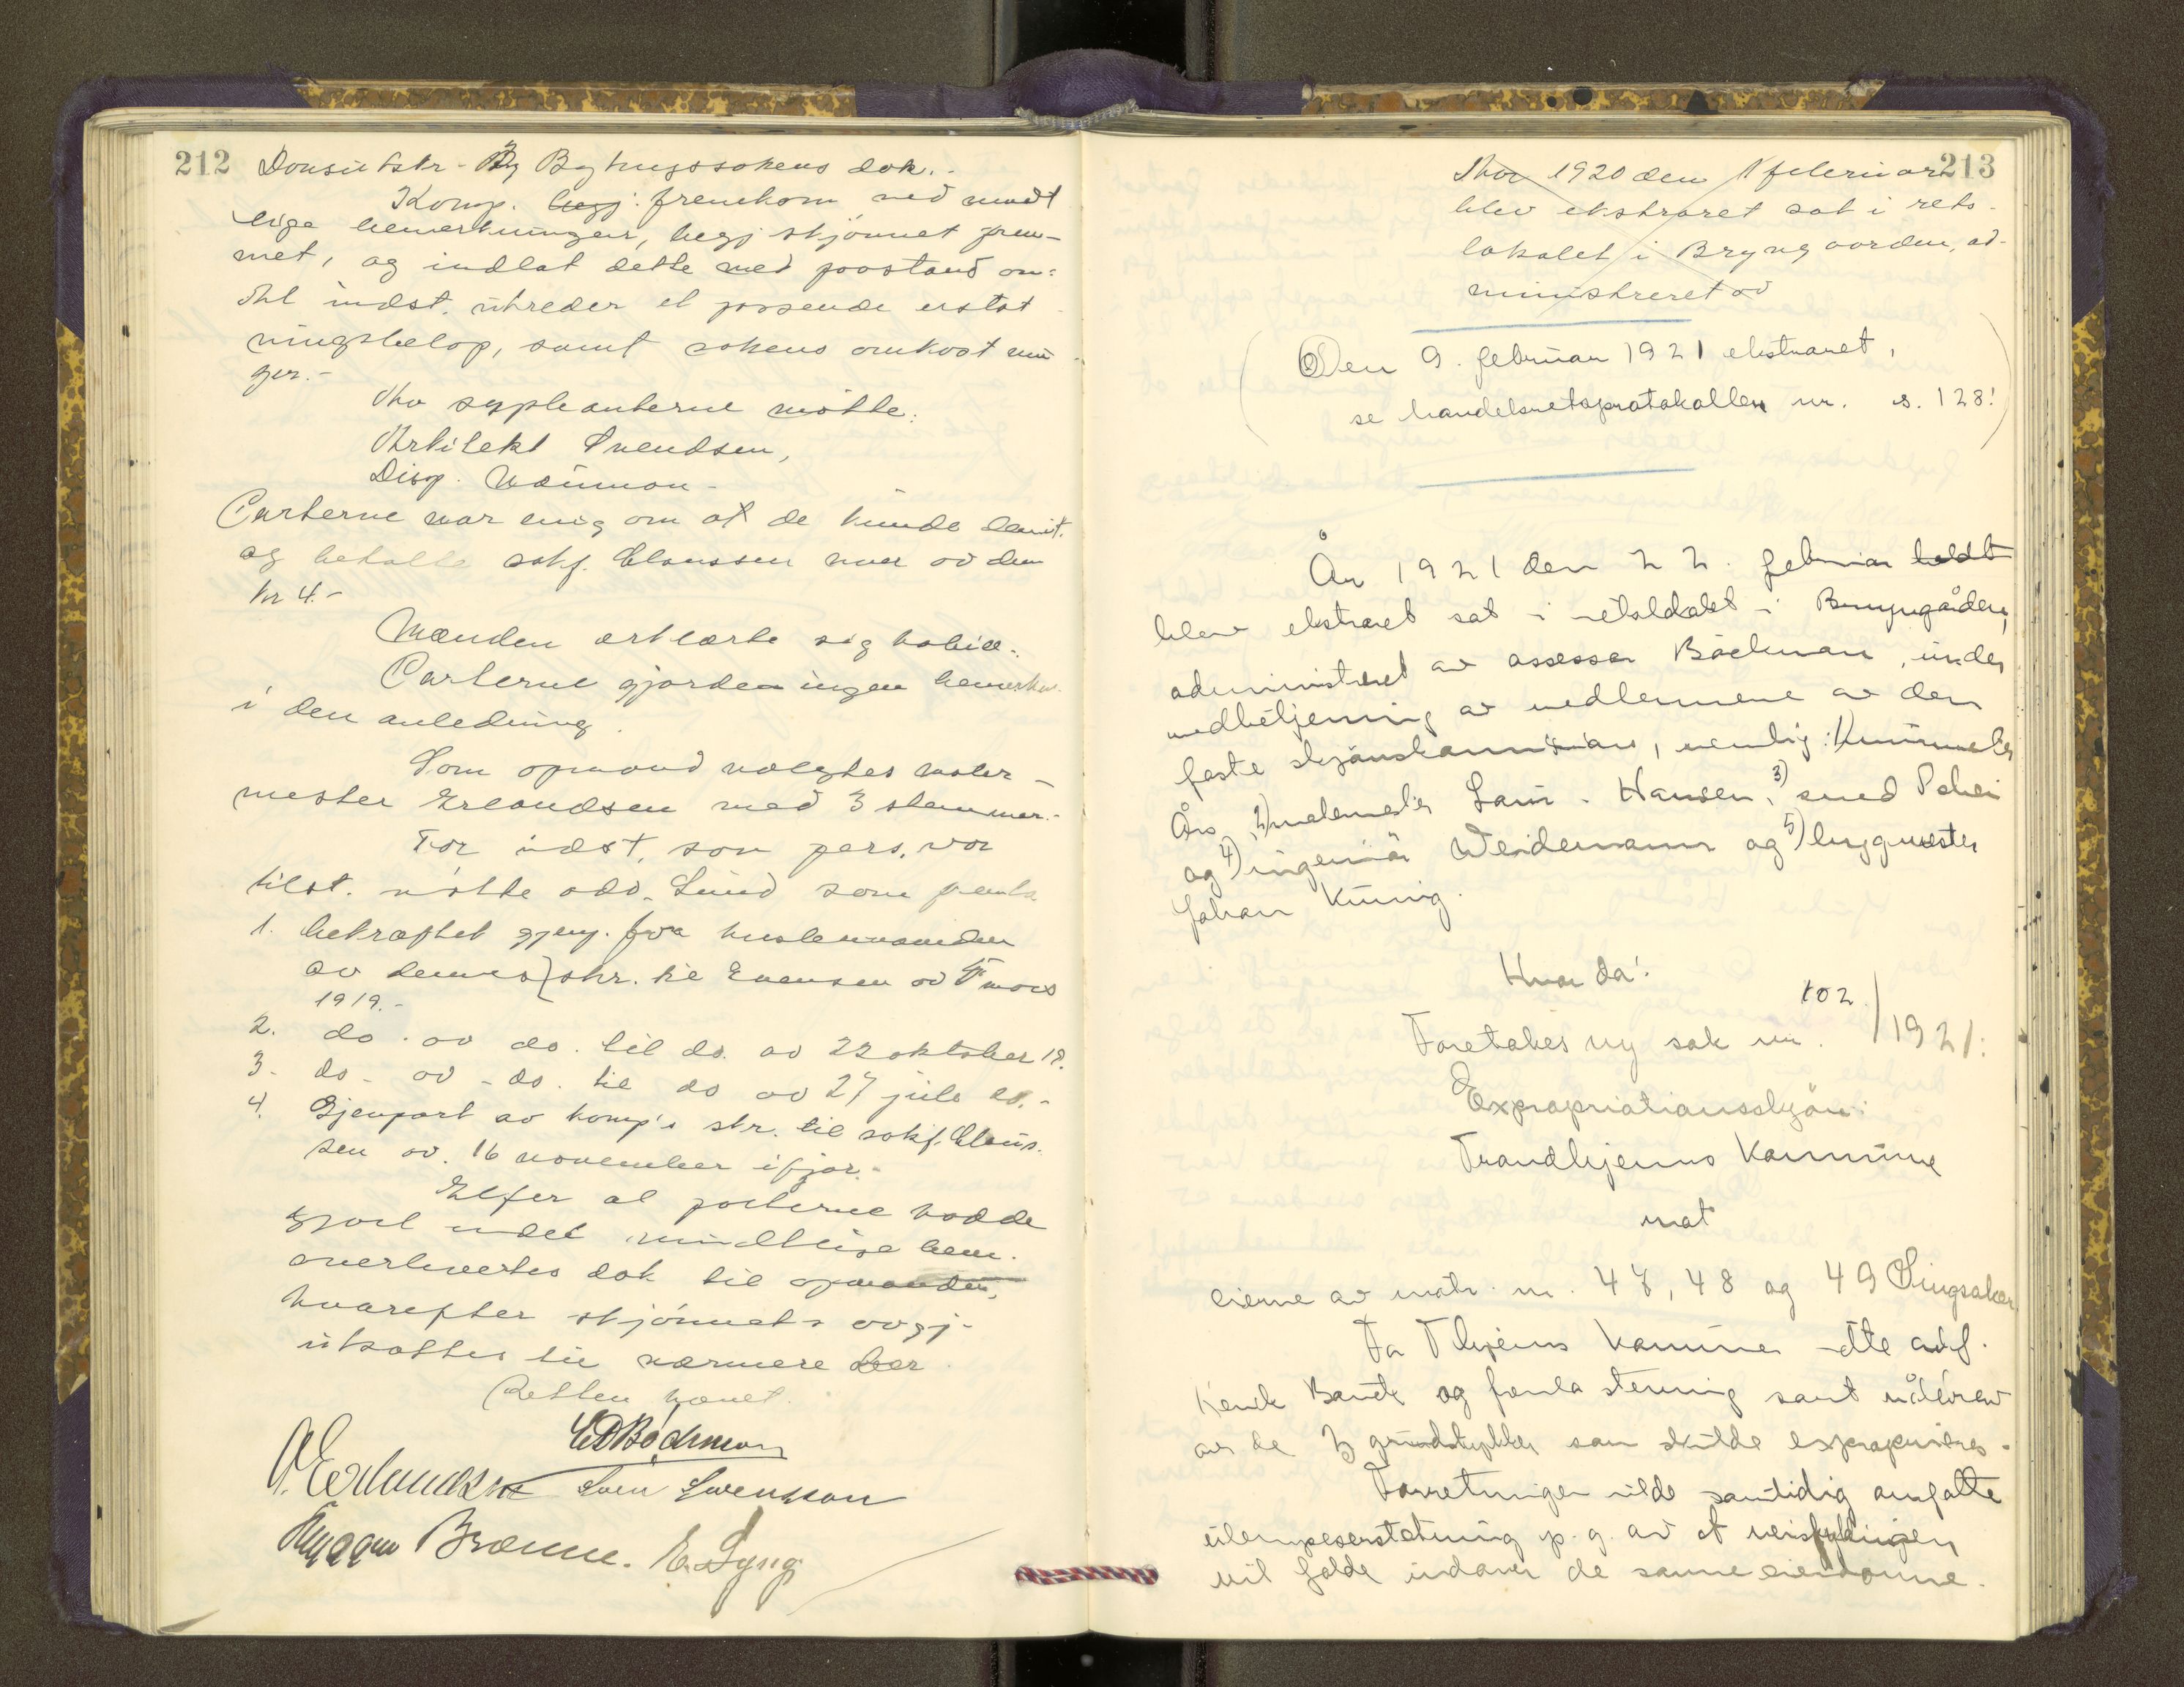 212
Komp. begj. fremkom med mundt
lige bemerkninger, begj skjønnet frem-
met, og indlot dette med paastand om:
At indst. utreder et passende erstat
ningsbeløp, samt sakens omkostnin
ger.-
Av saplikanterne møtte:
Arkitekt Svendsen,
Disp.
Parterne var enig om at de kunde
og beholde sakf. Claussen mer av dem
kr 4.-
Mænden erklærte sig habile.
Parterne gjorde ingen bemerkn.
i den anledning.
Som opmand valgtes maler-
mester Erlandsen med 3 stemmer.-
For indst. som pers. var
tilst. møtte adv. Lund som
1. bekræftet gjenp. fra husleienævnden
av dennes skr. til Evensen av mars
1919.-
2. do. av do. til do. av 22 oktober 19.
3- do- av - do. til do av 27 juli
4. Gjenpart av komp's skr. til sakf. Claus-
sen av. 16 november ifjor.-
Efter at parterne hadde
gjort endel mundtlige bem.
overlevertes dok til opmanden,
hvorefter skjønnets avgj-
utsattes til nærmere
Retten hævet.
E Bødtman
A. Erlandsen Sven Svensson
Brænne. E. Lyng
213
Aar 1920 den februar
blev ekstraret sat i rets-
lokalet i Bryngaarden, ad-
ministreret av
(Den 9. februar 1921 ekstraret,
se handelsretsprotokollen nr. s. 128!)
År 1921 den 22. februar holdt
blev ekstraret sat i retslokalet i Bryngården,
administreret av assessor Bødtman, under
medbetjening av medlemmene av den
faste skjønskommission, nemlig:
Ås, 2) malemester Laur. Hansen, 3) smed
og 4) ingeniør Weidemann og 5) bygmester
Johan König.
Hvor da:
Foretokes ny sak nr. 102/1921:
Expropriationsskjøn:
Trondhjems Kommune
mot
eierne av matr. nr. 47, 48 og 49 Singsaker
For Thjems kommune møtte adf.
og fremla stevning samt målebrev
av de 3 grundstykker som skulde exproprieres.
Forretningen vilde samtidig omfatte
ulempeserstatning p. g. av at veisfyldingen
vil falde indover de samme eiendomme.